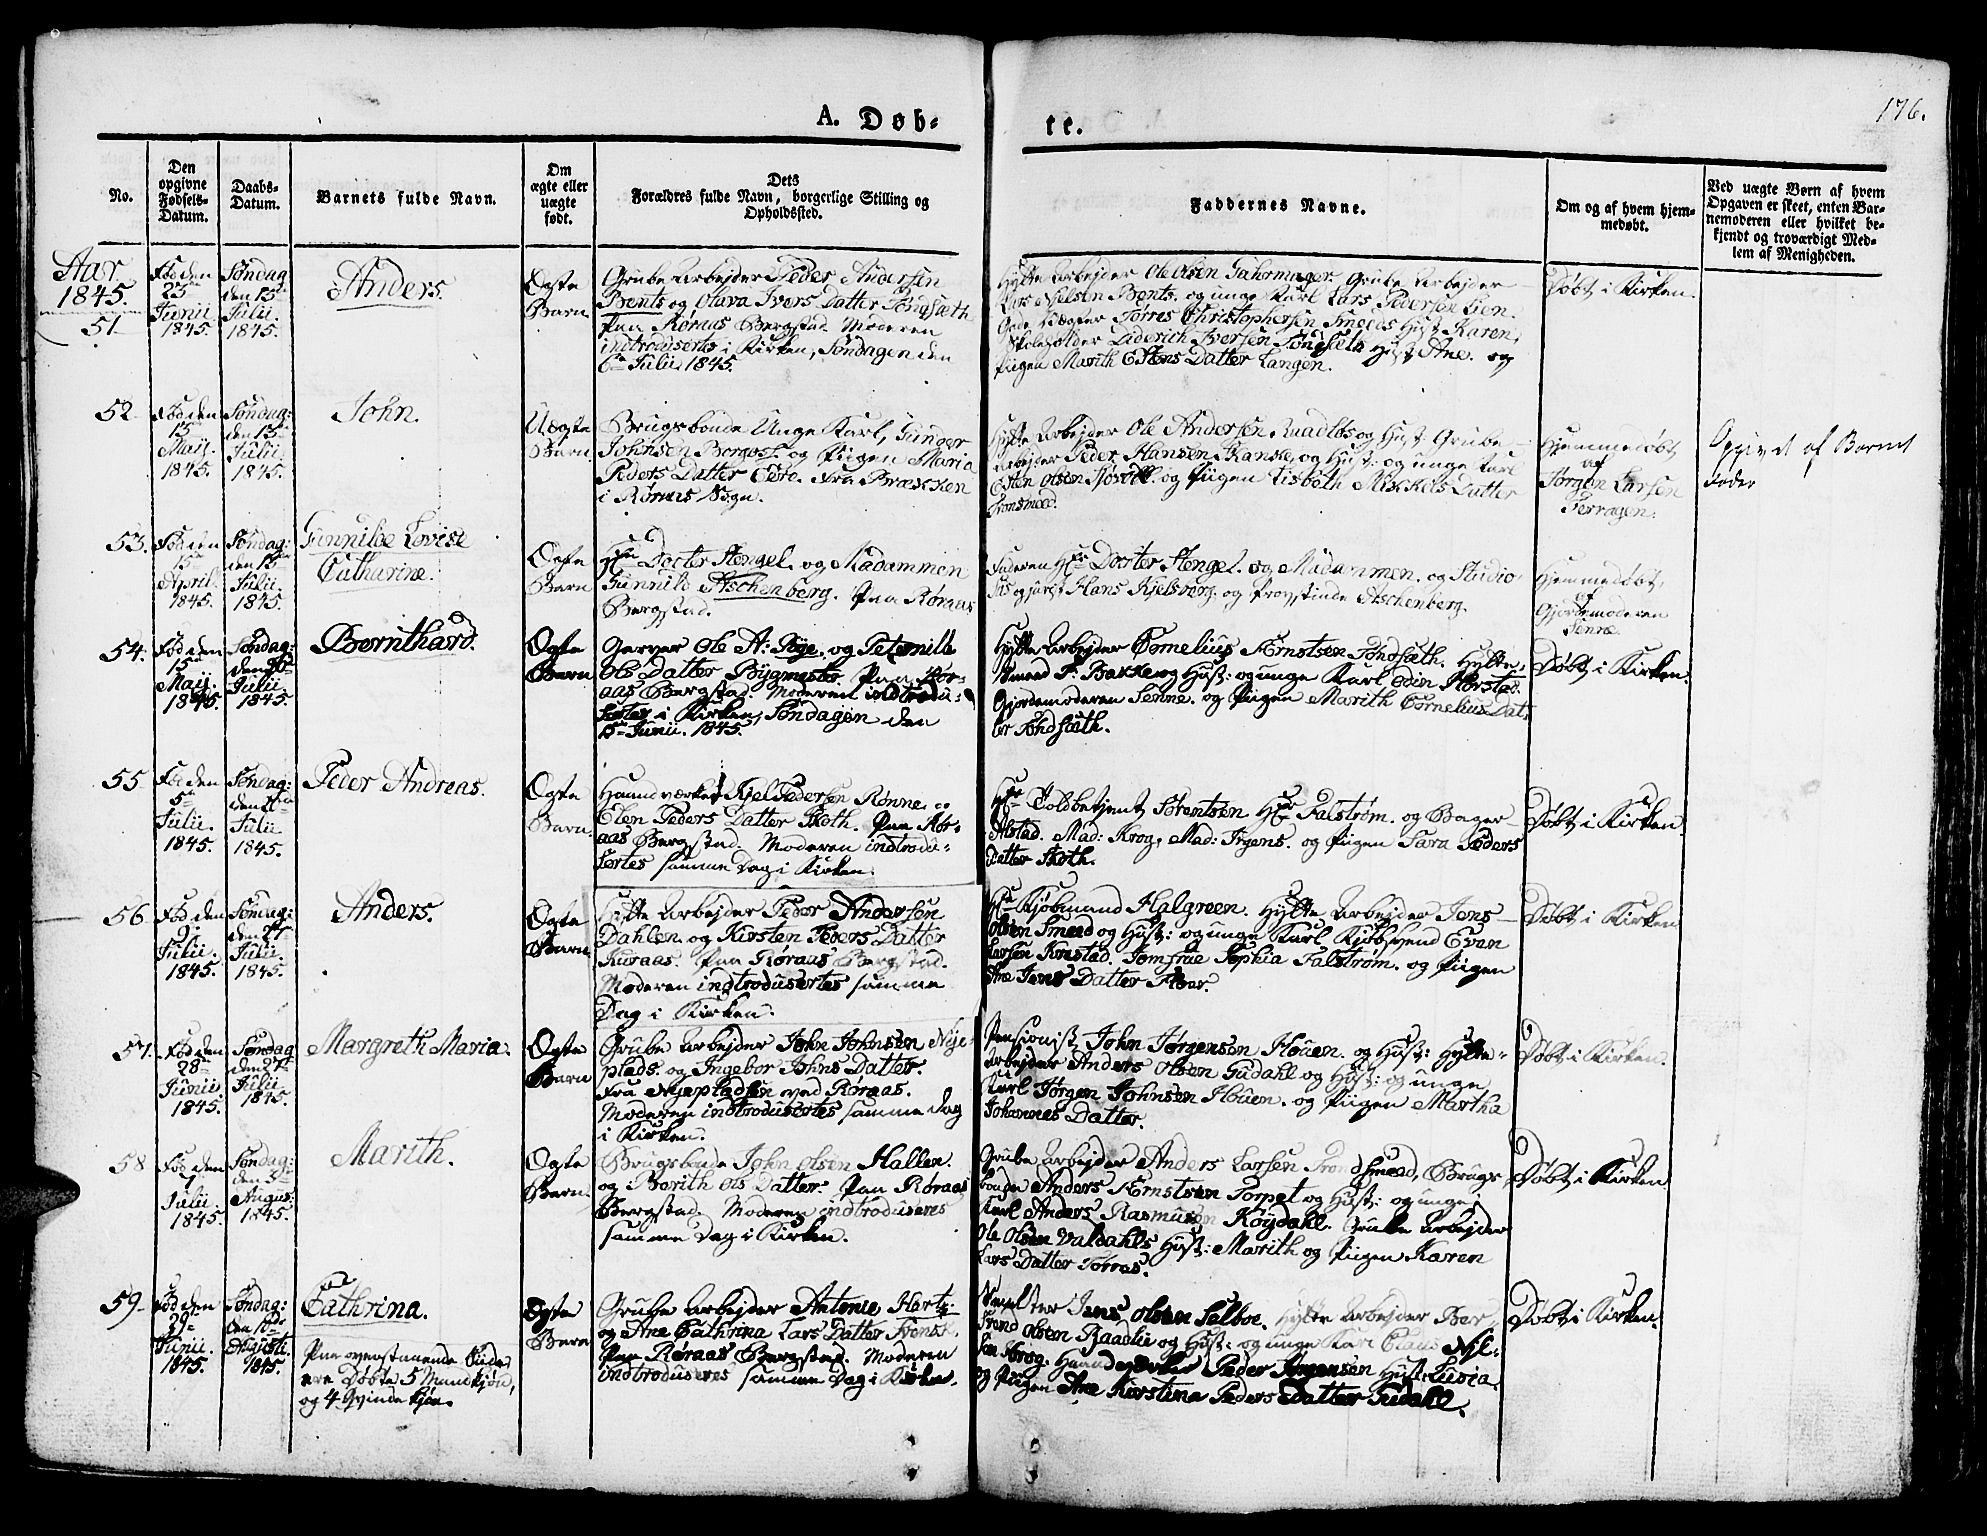 176.
A. Døb-
te.
No.
Den
opgivne
Fødsels-
Datum.
Daabs-
Datum.
Barnets fulde Navn.
Om
ægte eller
uægte
født.
Dets
Forældres fulde Navn, borgerlige Stilling og
Opholdssted.
Faddernes Navne.
Om og af hvem hjem-
medøbt.
Ved uægte Børn af hvem
Opgaven er skeet, enten Bar-
nemoderen eller hvilket be-
kjendt og troværdigt Med-
lem af Menigheden.
Aar
1845.
51
Fød den
25
Junii
1845.
Søndag
den 13
Julii.
1845.
Anders.
Ægte
Barn.
Grube Arbejder Peder Andersen
Brents og Olava Ivers Datter Tongsæth
Paa Røraas Bergstad. Moderen
indtroduserts i Kirken, Søndagen den
6 Julii 1845.
Hytte Arbejder Ole Olsen Grube Arbejder
Lars Nielsen Brents. og unge Karl Lars Pedersen Lien.
Torres Christophersen Smeds Hust. Karen,
Skoleholder Diderich Iversen Tongsæth Hust. Ane. og
Pigen Marith Estens Datter Langen.
Døbt i Kirken.
52
Fød den
15
Maij.
1845.
Søndag:
den 13
Julii
1845.
John.
Uægte
Barn.
Brugsbonde Unge Karl, Gunder
Johnsen Borgos. og Pigen Maria
Peders Datter Eere. Fra Brækken
i Røraas Sogn.
Hytte Arbejder Ole Andersen og Hust. Grube
Arbejder Peder Hansen og Hust: og unge Karl
Esten Olsen og Pigen Lisbeth Mickels Datter
Tronsmed.
Hjemmedøbt
af
Jørgen Larsen
Ferragen.
Opgivet af Barnet
Fader
53.
Fød den
15
April.
1845.
Søndag:
den 13
Julii
1845.
Gunnilde Lovise
Catharine.
Ægte
Barn
Hr Docter Stengel. og Madammen
Gunnild Aschenberg. Paa Røraas
Bergstad.
Faderen Hr Docter Stengel. og Madammen. og Studio-
sus og jurist Hans Kjelsberg. og Provstinde Aschenberg.
Hjemmedøbt,
af
Gjordemoderen
Senne.
54.
Fød den
15
Maij
1845.
Søndag:
den 20
Julii.
1845.
Bernthard.
Ægte
Barn
Garver Ole A: og Peternille
Ols Datter Bygmester Paa Rør-
aas Bergstad. Moderen indtrodu-
sertes i Kirken, Søndagen den
15 Junii. 1845.
Hytte Arbejder Cornelius Ernstsen Tondsæth. Hytte
Smed P: Bakke og Hust: og unge Karl Odin Harstad.
Gjordemoderen Senne. og Pigen Marith Cornelius Dat-
ter Tondsæth.
Døbt i Kirken.
55
Fød den
5
Julii.
1845.
Søndag:
den
Julii
1845.
Peder Andreas.
Ægte
Barn.
Haandværker Kjel Pedersen Rønne. og
Elen Peders Datter Skoth. Paa Rør-
aas Bergstad. Moderen indtrodu-
sertes samme Dag i Kirken.
Hr Toldbetjent Sørentsen Hr Falstrøm. og Bager
Alstad. Mad: Krog, Mad: Irgens. og Pigen Sara Peders
Datter Skoth.
Døbt i Kirken.
56
Fød den
9
Julii.
1845.
Søndag:
den 27
Julii.
1845.
Anders.
Ægte
Barn
Hytte Arbejder Peder Andersen
Dahlen. og Kirsten Peders Datter
Kuraas. Paa Røraas Bergstad.
Moderen indtrodusertes samme
Dag i Kirken.
Hr Kjøbmand Halgreen. Hytte Arbejder Jens
Olsen Smed og Hust: og unge Karl Kjøbsvend Evan
Larsen Jomfrue Sophia Falstrøm. og Pigen
Ane Jens Datter Floer.
Døbt i Kirken
57.
Fød den
28
Junii
1845.
Søndag
den 27
Julii
1845.
Margreth Maria.
Ægte
Barn
Grube Arbejder John Johnsen Nye-
plads. og Ingebor Johns Datter.
Fra Nyepladsen ved Røraas.
Moderen indtrodusertes samme dag
i Kirken.
Pensionist John Jørgensen Houen. og Hust: Hytte-
Arbejder Anders Olsen Gudahl og Hust: og unge
Karl Jørgen Johnsen Houen. og Pigen Martha
Johannes Datter.
Døbt i Kirken.
58
Fød den
7
Julii
1845.
Søndag:
den 3
Augus:
1845.
Marith.
Ægte
Barn.
Brugsbonde John Olsen Hallen.
og Berith Ols Datter. Paa Røraas
Bergstad. Moderen indtroduseres
samme Dag i Kirken.
Grube Arbejder Anders Larsen Trondsmed, Brugs
bonde Anders Ernstsen Torpet og Hust: og unge
Karl Anders Rasmusen Køydahl. Grube Arbejder
Ole Olsen Valdahls Hust: Marith og Pigen Karen
Lars Datter Torres.
Døbt i Kirken.
59
Fød den
29
Junii.
1845.
Søndag:
den 10
Auguste
1845.
Cathrina.
Paa ovenstaaende Side
ere Døbte 5 Mandkjøn,
og 4 Qvindekjøn.
Ægte
Barn
Grube Arbejder Antonie Hartz.
og Ane Cathrina Lars Datter
Paa Røraas Bergstad. Moderen
indtroduseres samme Dag i Kirken.
Jens Olsen Selboe. Hytte Arbejder Ber-
Trond Olsen Raadlie og Hust: og unge Karl Claus Niel-
sen Krog. Haandværker Peder Jørgensen Hust: Lusia.
og Pigen Ane Kirstina Peders Datter Fiedahl.
Døbt i Kirken.